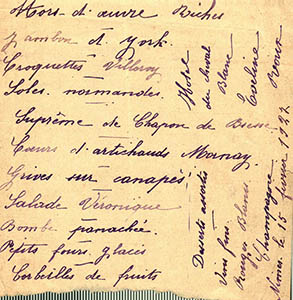 Hors-d'œuvre Riches
Jambon d'York.
Croquettes Villeroy
Soles normandes.
Suprême de Chapon de Bresse
Cœurs d'artichauds Mornay.
Grives sur canapés
Salade Véronique
Bombe panaché.
Petits fours glacés
Corbeilles de fruits
Desserts assortis
Vins fins
Rouges Blancs
Champagne
Hôtel
du Cheval
Blanc
15 février 1927